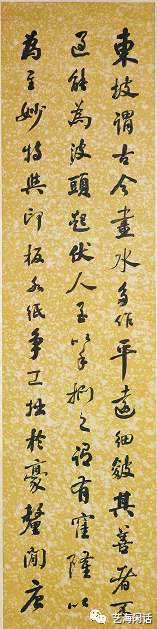 東坡謂古今畫水多作平遠細皺其善者不
過能為波頭起伏人至以手捫之謂有窪隆以
為至妙特與印板水紙爭工拙於豪釐間唐
艺海闲话